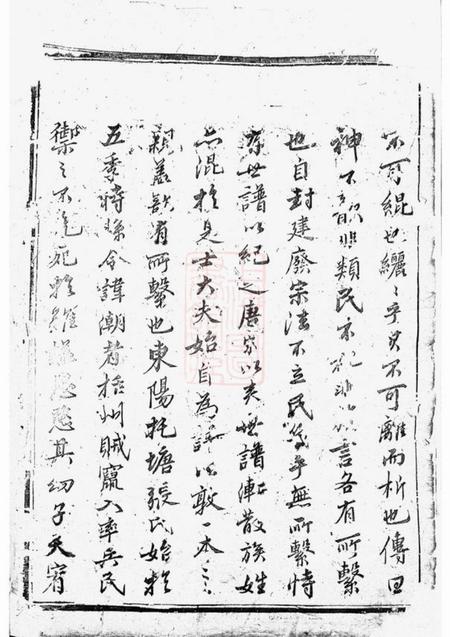 不可緄也纚〻乎其不可離而析也傳曰
神不歆非類民不祀非以言各有所繫
也自封建廢宗法不立民幾乎無所繫恃
有世譜以紀之唐家以來世譜散族姓
亦混於是士大夫始自為譜以敦一本之
親蓋欲有所繫也東陽托塘張氏始於
五季時縣令諱潮者括州賊竄入率兵民
禦之不克死其幼子天宥